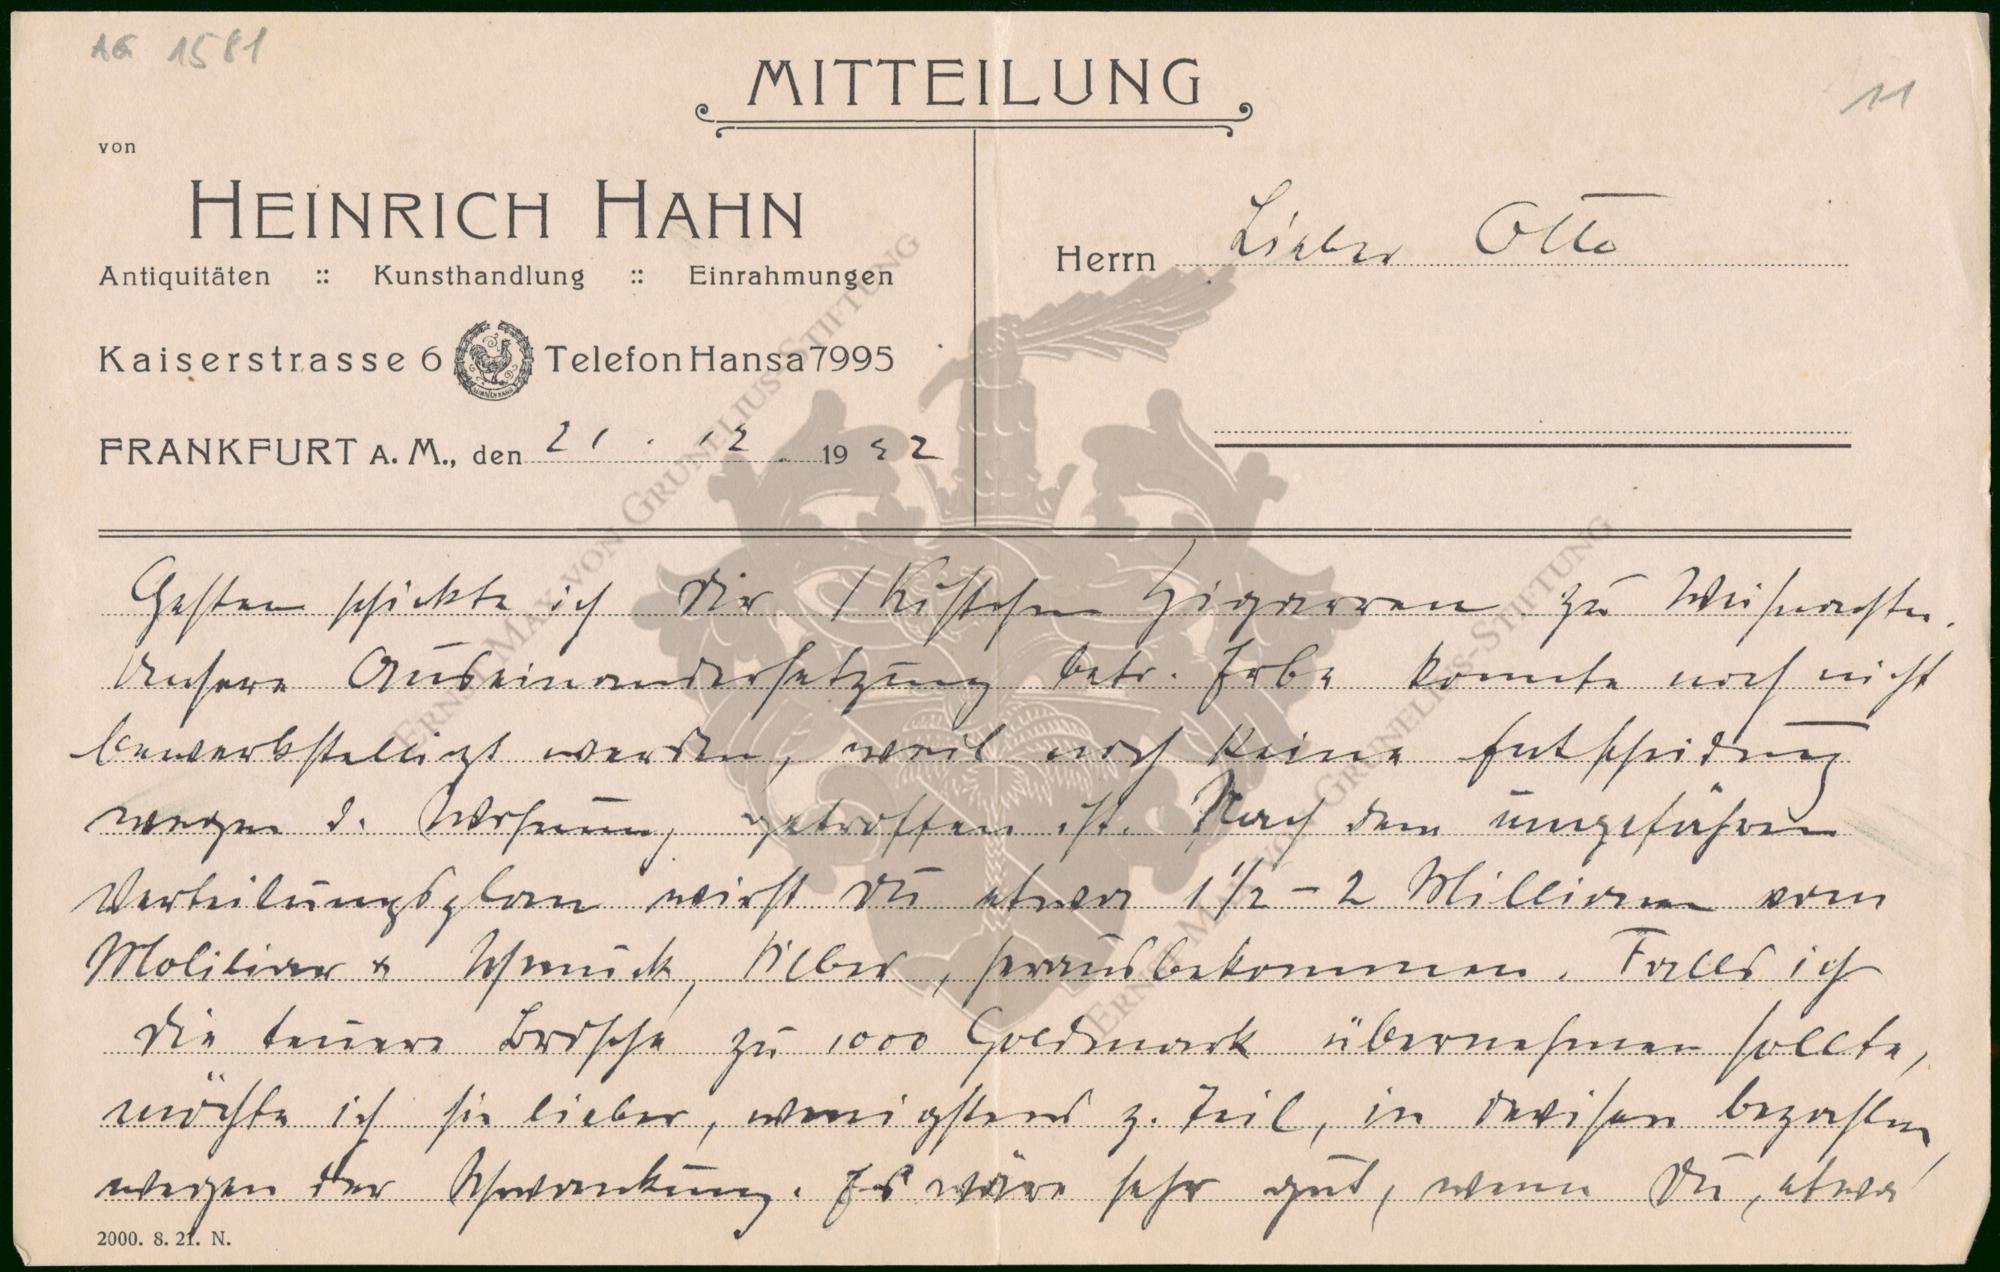 AG 1581
11
MITTEILUNG
von
HEINRICH HAHN
Antiquitäten :: Kunsthandlung :: Einrahmungen
Kaiserstrasse 6 Telefon Hansa 7995
FRANKFURT A. M., den 21. 12. 1922
Herrn Lieber Otto
Gestern schickte ich Dir 1 Kistchen Zigarren zu Weihnachten.
Unsere Auseinandersetzung betr. Erbe konnte noch nicht
bewerkstelligt werden, weil noch keine Entscheidung
wegen d. Wohnung getroffen ist. Nach dem ungefähren
Verteilungsplan wirst Du etwa 1 1/2 - 2 Millionen vom
Mobiliar & Schmuck, Silber, herausbekommen. Falls ich
die teuere Brosche zu 1000 Goldmark übernehmen sollte,
möchte ich sie lieber, wenigstens z. Teil, in Devisen bezahlen
wegen der Schwankung. Es wäre sehr gut, wenn Du, etwa
2000. 8. 21. N.
ERNST MAX VON GRUNELIUS-STIFTUNG
ERNST MAX VON GRUNELIUS-STIFTUNG